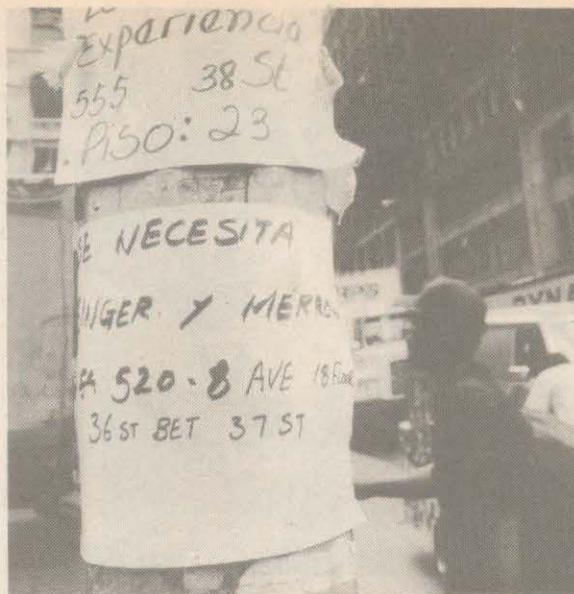 Experiencia
555 38 St
Piso: 23
NECESITA
Y
520-8 AVE 18 Floor
36 ST BET 37 ST